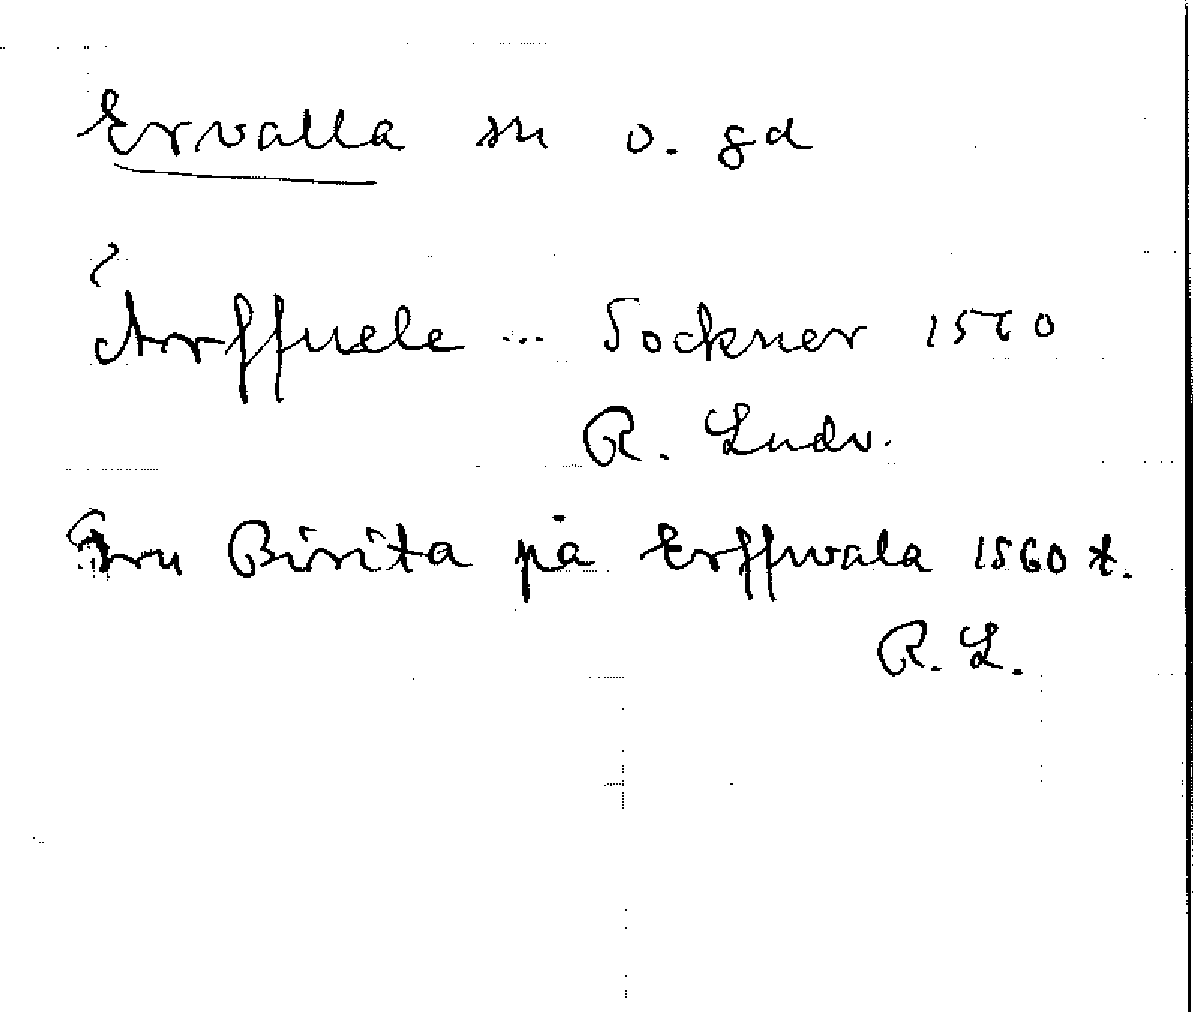 Ervalla sn o. gd
?
Arffuele ... Sockner 1560
R. Ludv.
Fru Birita på Erffwala 1560 t.
R. L.